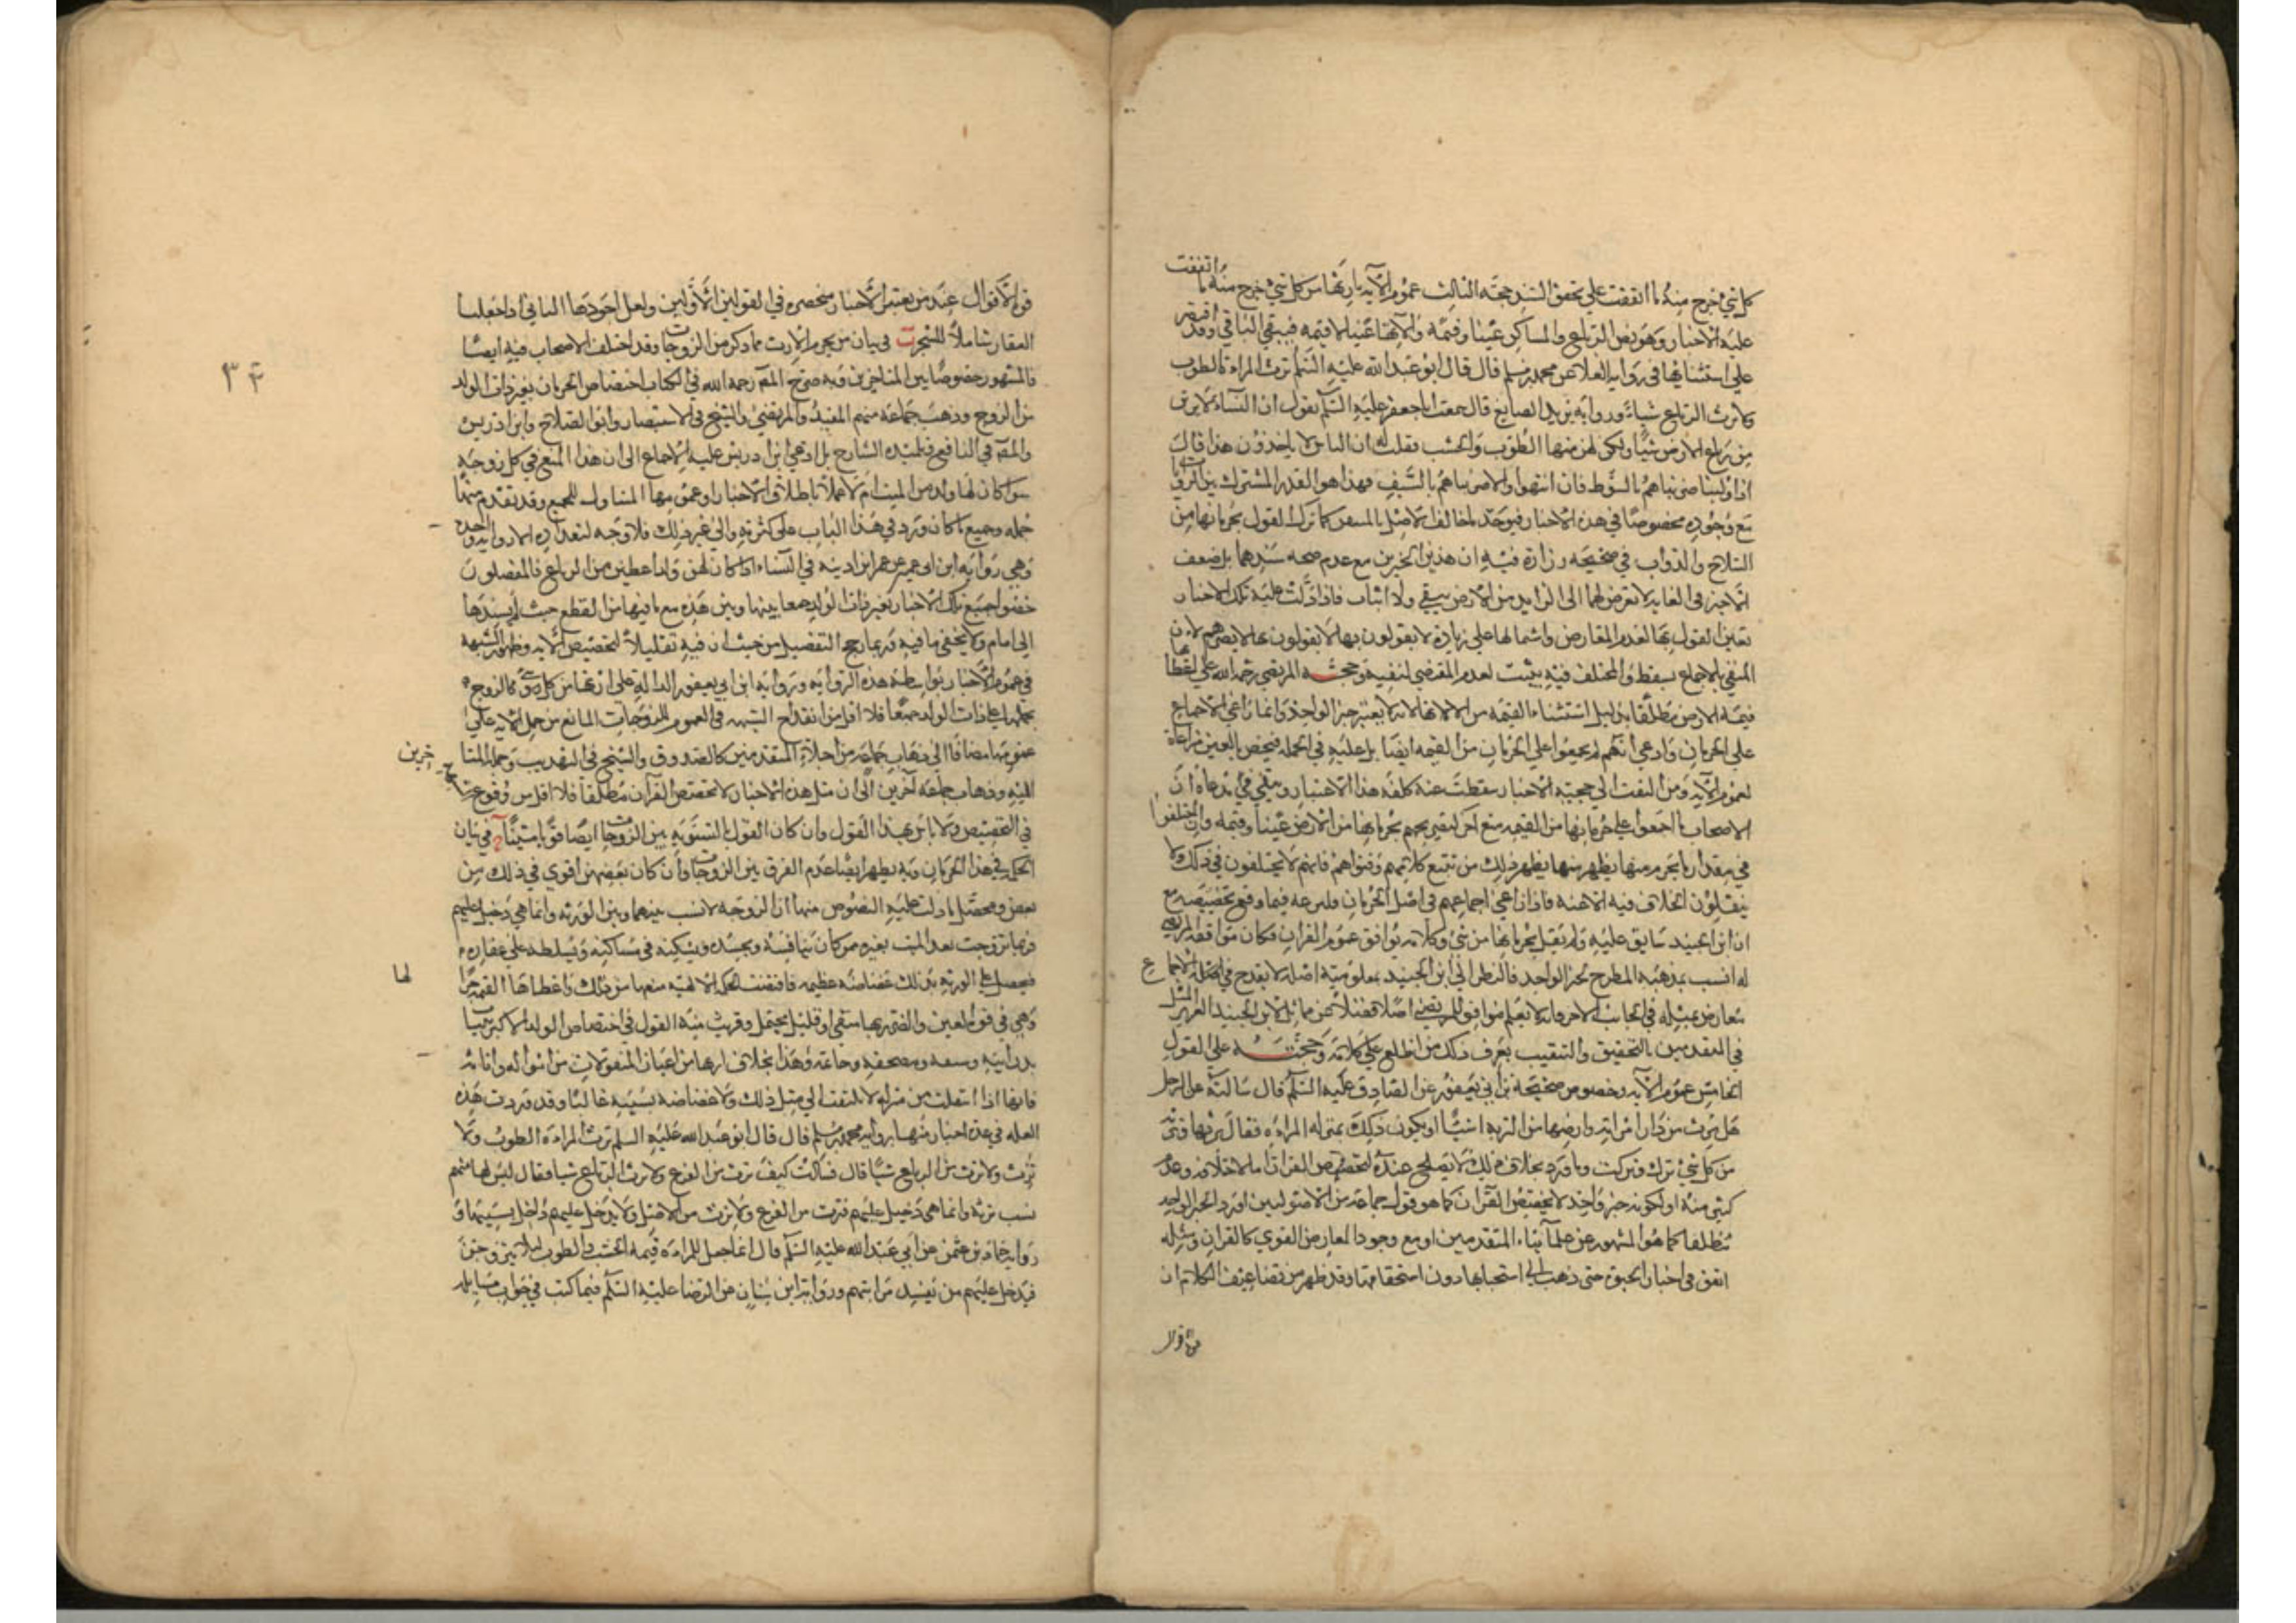 كل شيء خرج منه ما اتفقت على تحقق السند حجة الثالث عموم الآية بارثها من كل شيء خرج منه ما اتفقت
عليه الاخبار وهو نص الرباع والمساكن عينا وقيمة والآتها عينا لا قيمة فيبقى الباقي وقد اقتصر
على استثنائها في رواية العلا عن محمد بن مسلم قال قال ابو عبد الله عليه السلم ترث المراة الطوب
ولا ترث الرباع شيأ ورواية يزيد الصايغ قال سمعت ابا جعفر عليه السلم يقول ان النساء لا يرثن
من رباع الارض شيأ ولكن لهن منها الطوب والخشب فقلت له ان الناس لا ياخذون هذا قال
اذا ولينا ضربناهم بالسوط فان انتهوا والا ضربناهم بالسيف فهذا هو القدر المشترك بين الروايات
مع وجوده مخصوصا في هذه الاخبار فيؤخذ لمخالف الاصل بالمتيقن كما ترك القول بحرمانها من
السلاح والدواب في صحيحة زرارة فيه ان هذين الخبرين مع عدم صحة سندهما بل ضعف
الاخير في الغاية لا تعرض لهما الى الزايد من الارض بنفي ولا اثبات فاذا دلت عليه تلك الاخبار
تعين القول بها لعدم المعارض واشتمالها على زيادة لا يقولون بها لا يقولون بها لا يضرهم لان
المنفي بالاجماع يسقط والمختلف فيه يثبت لعدم المقتضي لنفيه وحجة المرتضى رحمه الله على اعطائها
قيمة الارض مطلقا بدليل استثناء القيمة من الآلات لانه لا يعتبر خبر الواحد وانما راعى الاجماع
على الحرمان وادعى انهم لم يجمعوا على الحرمان من القيمة ايضا بل عليه في الجملة فيخص بالعين مراعاة
لعموم الآية ومن التفت الى حجية الاخبار سقطت عنه كلفة هذا الاعتبار ويبقى في مدعاه ان
الاصحاب ما اجمعوا على حرمانها من القيمة منع اخر لتصريحهم بحرمانها من الارض عينا وقيمة وان اختلفوا
في مقدار ما يحرم منها يظهر منها يظهر ذلك من تتبع كلامهم وفتواهم فانهم لا يختلفون في ذلك ولا
ينقلون الخلاف فيه الا عنه فاذا ادعى اجماعهم في اصل الحرمان فليدعه فيما وقع تخصيصه مع
ان ابن الجنيد سابق عليه ولم يقل بحرمانها من شيء وكلامه يوافق عموم القران فكان موافقة المرتضى
له انسب بمذهبه المطرح لخبر الواحد فالنظر الى ان ابن الجنيد بمعلومية اصله لا يقدح في اصل الاجماع
معارض بمثله في الجانب الاخر فانه لا يعلم موافق للمرتضى اصلا فضلا عمن ماثل ابن الجنيد العزيز المثل
في المتقدمين بالتحقيق والتنقيب يعرف ذلك من اطلع على كلامه وحجة على القول
الخامس عموم الآية وخصوص صحيحة ابن ابي يعفور عن الصادق عليه السلم قال سالته عن الرجل
هل يرث من دار امراته وارضها من التربة شيئا او يكون ذلك بمنزلة المراة فقال يرثها وترثه
من كل شيء ترك وتركت وما ورد بخلاف ذلك لا يصلح عنده لتخصيص القران اما لاختلافه وعدم
كثير منه او لكونه خبر واحد لا يخصص القران كما هو قول جماعة من الاصوليين او رد الخبر الواحد
مطلقا كما هو المشهور عن علمآئنا المتقدمين او مع وجود المعارض القوي كالقران ومثله
اتفق في اخبار الحبوة حتى ذهب الى استحبابها دون استحقاقها وقد ظهر من تضاعيف الكلام ان
قوة الاقوال
قوة الاقوال عند من يعتبر الاخبار منحصرة في القولين الاولين ولعل اجودها الثاني اذا جعلنا
العقار شاملا للشجر ب في بيان من يحرم الارث مما ذكر من الزوجات وقد اختلف الاصحاب فيه ايضا
فالمشهور خصوصا بين المتاخرين وبه صرح المصـ رحمه الله في الكتاب اختصاص الحرمان بغير ذات الولد
من الزوج وذهب جماعة منهم المفيد والمرتضى والشيخ في الاستبصار وابو الصلاح وابن ادريس
والمصـ في النافع وتلميذه الشارح بل ادعى ابن ادريس عليه الاجماع الى ان هذا المنع في كل زوجة
سوا كان لها ولد من الميت ام لا عملا باطلاق الاخبار او عمومها المتناول للجميع وقد تقدم منها
جملة وجميع ما كان ورد في هذا الباب على كثرته والى غير ذلك فلا وجه لتعداده الا رواية واحدة
وهي رواية ابن ابي عمير عن عمر ابن اذينة في النساء اذا كان لهن ولد اعطين من الرباع فالمفصلون
خصوا جميع تلك الاخبار بغير ذات الولد جمعا بينها وبين هذه مع ما فيها من القطع حيث لم يسندها
الى امام ولا يخفى ما فيه وربما رجح التفصيل من حيث ان فيه تقليلا لتخصيص الآية وظهور الشبهة
في عموم الاخبار بواسطة هذه الرواية ورواية ابن ابي يعفور الدالة على ارثها من كل شيء كالزوج
بحملها على ذات الولد جمعا فلا اقل من انقداح الشبهة في العموم للزوجات المانع من حمل الآية على
عمومها مضافا الى ذهاب جماعة من اجلاء المتقدمين كالصدوق والشيخ في التهذيب وجملة المتاخرين
اليه وذهاب جماعة آخرين الى ان مثل هذه الاخبار لا تخصص القرآن مطلقا فلا اقل من وقوع ح
في التخصيص ولا باس بهذا القول وان كان القول بالتسوية بين الزوجات ايضا قويا متينا ج في بيان
الحكمة في هذا الحرمان وبه يظهر ايضا عدم الفرق بين الزوجات وان كان بعضهن اقوى في ذلك من
بعض ومحصل ما دلت عليه النصوص منها ان الزوجة لا نسب بينها وبين الورثة وانما هي دخيل عليهم
فربما تزوجت بعد الميت بغيره ممن كان ينافسه ويحسده ويسكنه في مساكنه ويسلطه على عقاره
فيحصل على الورثة بذلك غضاضة عظيمة فاقتضت الحكمة الالهية منعها من ذلك واعطاها القيمة جبرا لها
وهي في قوة العين والضرر بها منتفى او قليل يحتمل وقريب منه القول في اختصاص الولد الاكبر بثياب
بدن ابيه وسيفه ومصحفه وخاتمه وهذا بخلاف ارثها من اعيان المنقولات من امواله واثاثه
فانها اذا انتقلت من منزله لا يلتفت الى مثل ذلك ولا غضاضة بسببه غالبا وقد وردت هذه
العلة في عدة اخبار منها رواية محمد بن مسلم قال قال ابو عبد الله عليه السلم ترث المراة الطوب ولا
ترث ولا ترث من الرباع شيأ قال قلت كيف ترث من الفرع ولا ترث الرباع شيأ فقال ليس لها منهم
نسب ترثه وانما هي دخيل عليهم فترث من الفرع ولا ترث من الاصل ولا يدخل عليهم داخل بسببها و
رواية حماد بن عثمن عن ابي عبد الله عليه السلم قال انما جعل للمراة قيمة الخشب والطوب لئلا يتزوجن
فيدخل عليهم من يفسد مواريثهم ورواية ابن سنان عن الرضا عليه السلم فيما كتب في جواب مسايله